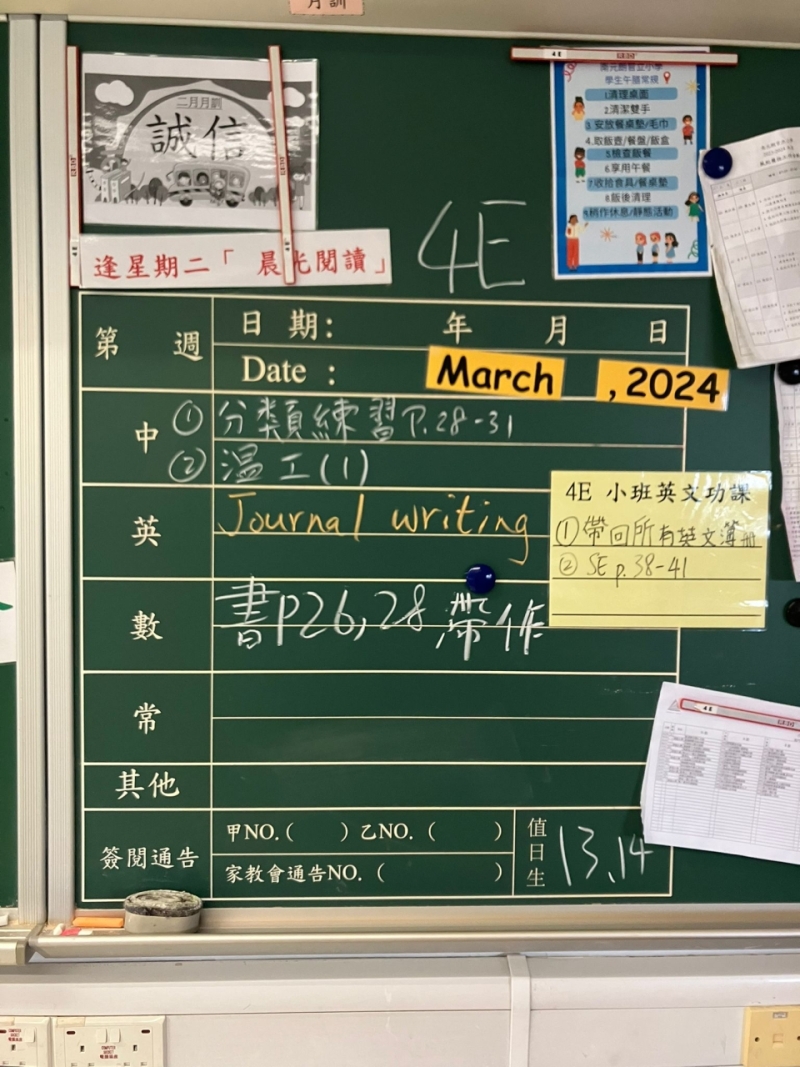 月訓
二月月訓
誠信
逢星期二「晨光閱讀」
4E
學生午膳常規
1.清理桌面
2.清潔雙手
3.安放餐桌墊/毛巾
4.取飯壺/餐盤/飯盒
5.檢查飯餐
6.享用午餐
7.收拾食具/餐桌墊
8.飯後清理
9.稍作休息/靜態活動
第 週
日 期: 年 月 日
Date :
March , 2024
中
① 分類練習 P.28-31
② 温工(1)
英
Journal writing
4E 小班英文功課
① 帶回所有英文簿冊
② SE p.38-41
數
書P26,28 帶作
常
其他
簽閱通告
甲NO.( ) 乙NO. ( )
家教會通告NO. ( )
值日生
13、14